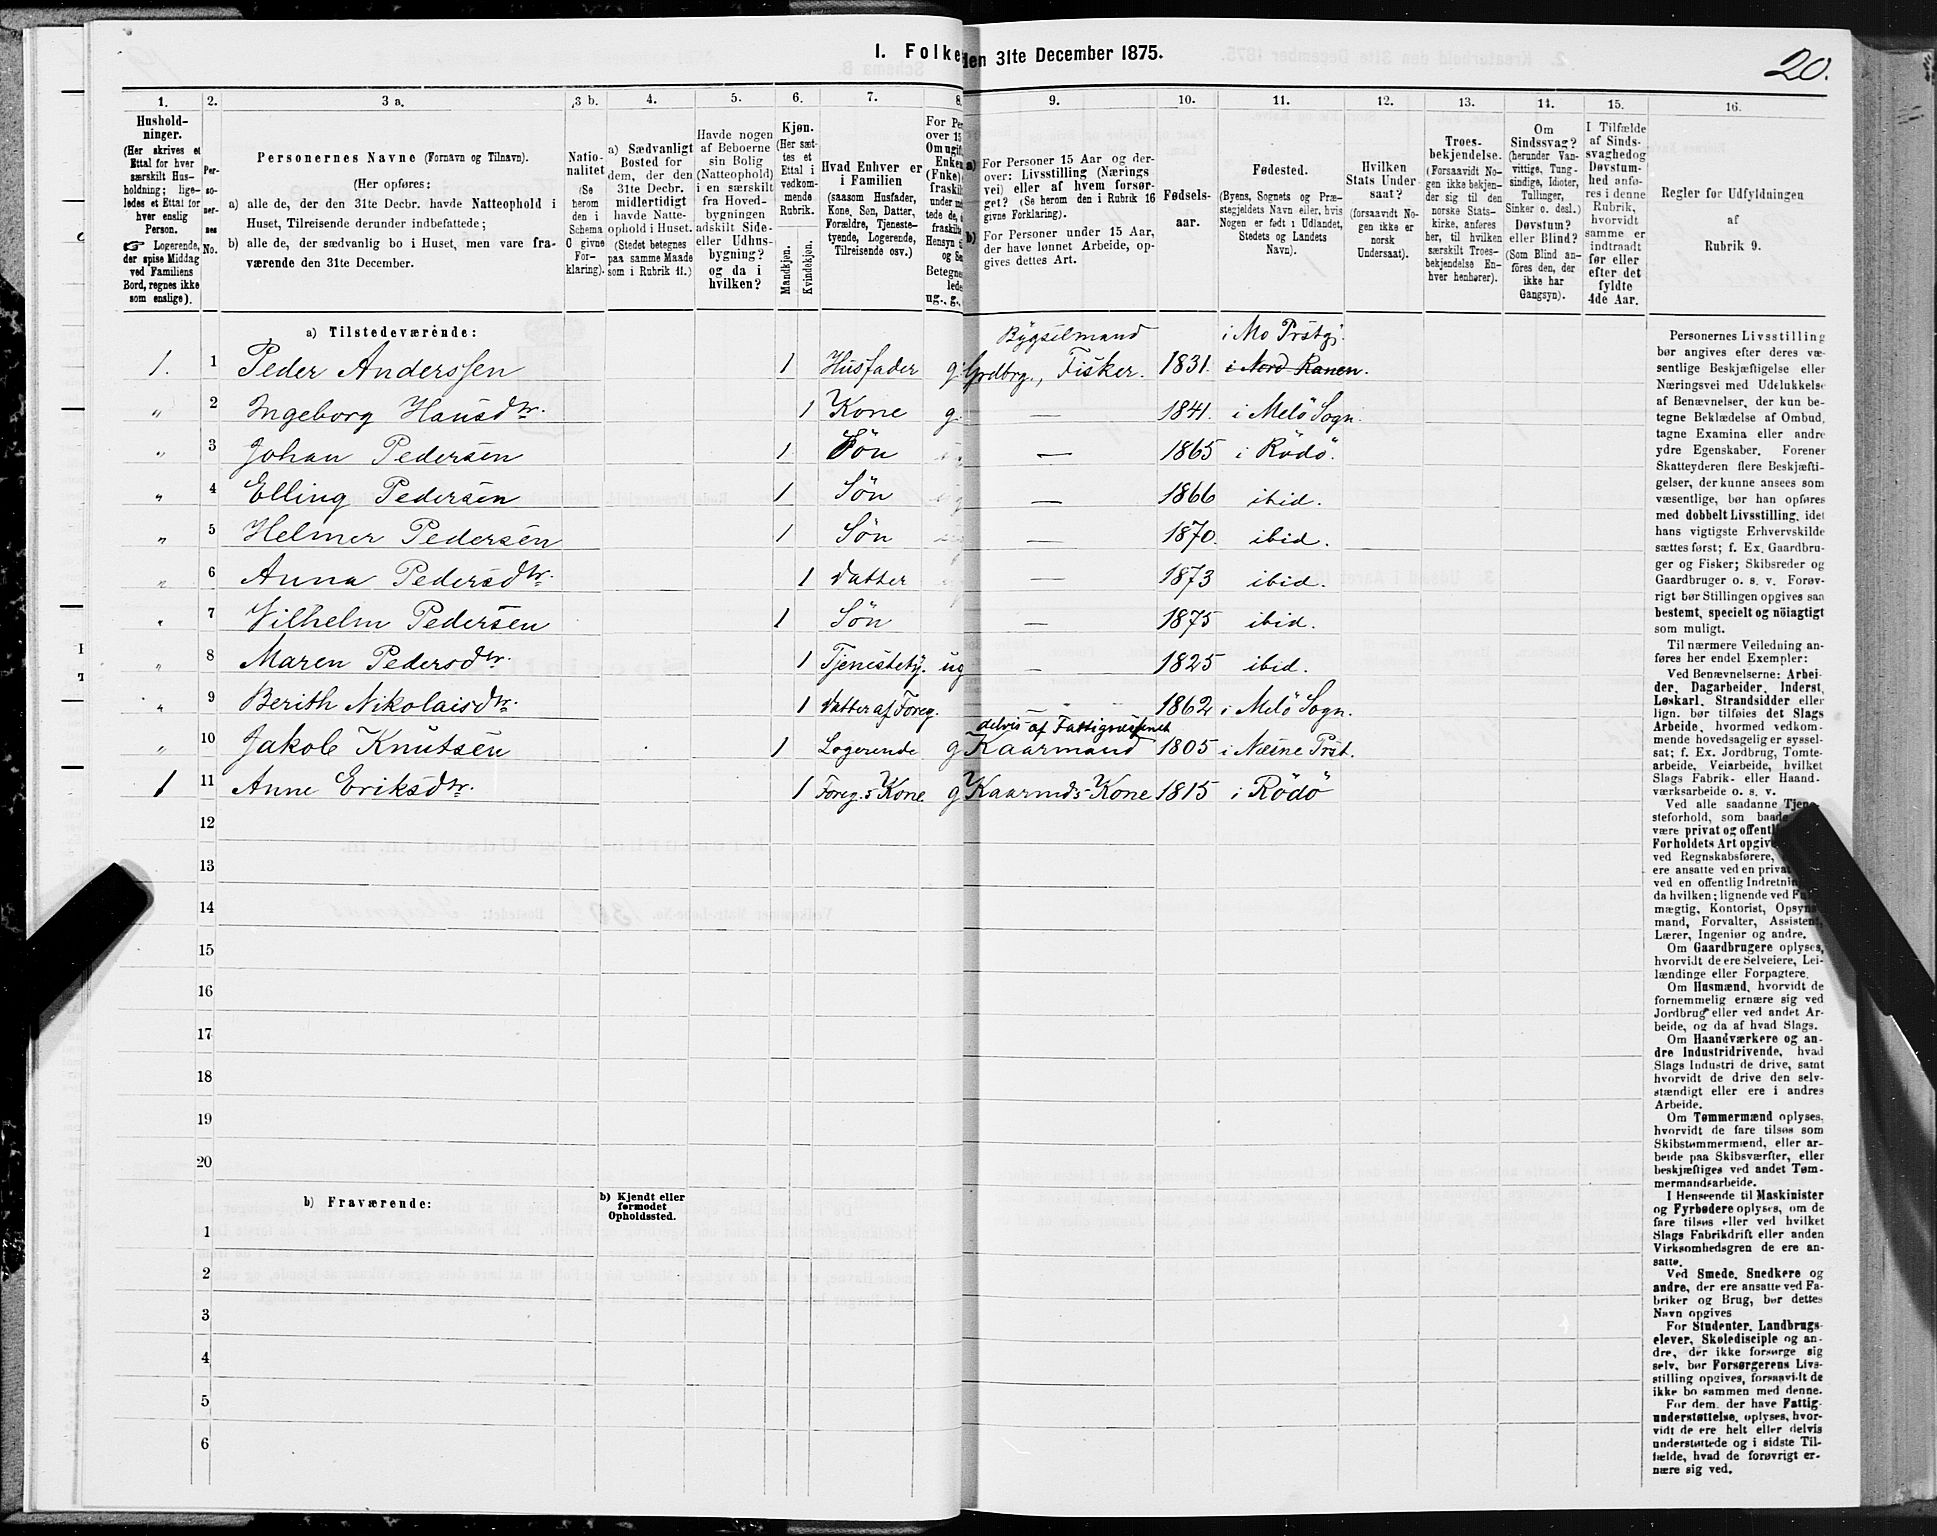 I. Folke den 31te December 1875.
20.
1. 2. 3 a. 3 b. 4. 5. 6. 7. 8. 9. 10. 11. 12. 13. 14. 15. 16.
Hushold-
ninger.
(Her skrives et
Ettal for hver
særskilt Hus-
holdning; lige-
ledes et Ettal for
hver enslig
Person.
☞ Logerende,
der spise Middag
ved Familiens
Bord, regnes ikke
som enslige).
Per-
so-
ner-
nes
No.
Personernes Navne (Fornavn og Tilnavn).
(Her opføres:
a) alle de, der den 31te Decbr. havde Natteophold i
Huset, Tilreisende derunder indbefattede;
b) alle de, der sædvanlig bo i Huset, men vare fra-
værende den 31te December.
Natio-
nalitet
(Se
herom
den i
Schema
C givne
For-
klaring).
a) Sædvanligt
Bosted for
dem, der den
31te Decbr.
midlertidigt
havde Natte-
ophold i Huset.
(Stedet betegnes
paa samme Maade
som i Rubrik 11.)
Havde nogen
af Beboerne
sin Bolig
(Natteophold)
i en særskilt
fra Hoved-
bygningen
adskilt Side-
eller Udhus-
bygning?
og da i
hvilken?
Kjøn.
(Her sæt-
tes et
Ettal i
vedkom-
mende
Rubrik.
Mandkjøn.
Kvindekjøn.
Hvad Enhver er
i Familien
(saasom Husfader,
Kone, Søn, Datter,
Forældre, Tjeneste-
tyende, Logerende,
Tilreisende osv.)
For Pe
over 15
Om ugif
Enken
(Fnke)
fraskil
under m
tede de,
fraskilte
Hensyn
og Se
Betegne
lede
ug., g.,
a) For Personer 15 Aar og der-
over: Livsstilling (Nærings
vei) eller af hvem forsør-
get? (Se herom den i Rubrik 16
givne Forklaring).
b) For Personer under 15 Aar,
der have lønnet Arbeide, op-
gives dettes Art.
Fødsels-
aar.
Fødested.
(Byens, Sognets og Præ-
stegjeldets Navn eller, hvis
Nogen er født i Udlandet,
Stedets og Landets
Navn).
Hvilken
Stats Under
saat?
(forsaavidt No-
gen ikke er
norsk
Undersaat).
Troes-
bekjendelse.
(Forsaavidt No-
gen ikke bekjen-
der sig til den
norske Stats-
kirke, anføres
her, til hvilken
særskilt Troes-
bekjendelse En-
hver henhører).
Om
Sindssvag?
(herunder Van-
vittige, Tung-
sindige, Idioter,
Tullinger,
Sinker o. desl.)
Døvstum?
eller Blind?
(Som Blind an-
føres den, der
ikke har
Gangsyn).
I Tilfælde
af Sinds-
svaghedog
Døvstum-
hed anfø-
res i denne
Rubrik,
hvorvidt
samme er
indtraadt
før eller
efter det
fyldte
4de Aar.
Regler før Udfyldningen
af
Rubrik 9.
a) Tilstedeværende:
Bygselmand i Mo Prstgj.
1. 1 Peder Anderssen 1 Husfader g Grdbrg., Fisker. 1831. i Nord Ranen.
„ 2 Ingeborg Hansdtr. 1 Kone g. — 1841. i Melö Sogn.
„ 3 Johan Pedersen 1 Søn — 1865 i Rödö.
„ 4 Elling Pedersen 1 Søn — 1866 ibid.
„ 5 Helmer Pedersen 1 Søn — 1870. ibid.
„ 6 Anna Pedersdtr. 1 Datter — 1873 ibid.
„ 7 Vilhelm Pedersen 1 Søn — 1875 ibid.
„ 8 Maren Pedersdtr. 1 Tjenestety. ug — 1825 ibid.
„ 9 Berith Nikolaisdtr. 1 Datter af Foreg. 1862 i Melö Sogn.
delvis af Fattigvæsenet
„ 10 Jakob Knutsen 1 Logerende g Kaarmand 1805 i Næsne Prst.
1 11 Anne Eriksdtr. 1 Foreg.s Kone g Kaarmds-Kone 1815 i Rödö
12
13
14
15
16
17
18
19
20
b) Fraværende:
b) Kjendt eller
formodet
Opholdssted.
1
2
3
4
5
6
Personernes Livsstilling
bør angives efter deres væ-
sentlige Beskjæftigelse eller
Næringsvei med Udelukkelse
af Benævnelser, der kun be-
tegne Beklædelse af Ombud,
tagne Examina eller andre
ydre Egenskaber. Forener
Skatteyderen flere Beskjæfti-
gelser, der kunne ansees som
væsentlige, bør han opføres
med dobbelt Livsstilling, idet
hans vigtigste Erhvervskilde
sættes først; f. Ex. Gaardbru-
ger og Fisker; Skibsreder og
Gaardbruger o. s. v. Forøv-
rigt bør Stillingen opgives saa
bestemt, specielt og nöiagtigt
som muligt.
Til nærmere Veiledning an-
føres her endel Exempler:
Ved Benævnelserne: Arbei-
der, Dagarbeider, Inderst,
Løskarl, Strandsidder eller
lign. bør tilføies det Slags
Arbeide, hvormed vedkom-
mende hovedsagelig er syssel-
sat; f. Ex. Jordbrug, Tomte-
arbeide, Veiarbeide, hvilket
Slags Fabrik- eller Haand-
værksarbeide o. s. v.
Ved alle saadanne Tjene-
steforhold, som baade
være privat og offentl
Forholdets Art opgiv
ved Regnskabsførere,
ere ansatte ved en privat
ved en offentlig Indretnin
da hvilken; lignende ved Fu
mægtig, Kontorist, Opsyns
mand, Forvalter, Assistent,
Lærer, Ingeniør og andre.
Om Gaardbrugere oplyses,
hvorvidt de ere Selveiere, Lei-
lændinge eller Forpagtere.
Om Husmænd, hvorvidt de
fornemmelig ernære sig ved
Jordbrug eller ved andet Ar-
beide, og da af hvad Slags.
Om Haandværkere og an-
dre Industridrivende, hvad
Slags Industri de drive, samt
hvorvidt de drive den selv-
stændigt eller ere i andres
Arbeide.
Om Tømmermænd oplyses,
hvorvidt de fare tilsøs som
Skibstømmermænd, eller ar-
beide paa Skibsværfter, eller
beskjæftiges ved andet Tøm-
mermandsarbeide.
I Henseende til Maskinister
og Fyrbødere oplyses, om de
fare tilsøs eller ved hvilket
Slags Fabrikdrift eller anden
Virksomhedsgren de ere an-
satte.
Ved Smede, Snedkere og
andre, der ere ansatte ved Fa-
briker og Brug, bør dettes
Navn opgives
For Studenter, Landbrugs-
elever, Skoledisciple og an-
dre, der ikke forsørge sig
selv, bør Forsørgerens Livs-
stilling opgives, forsaavidt de
ikke bo sammen med denne.
For dem, der have Fattig-
understøttelse, oplyses, hvor-
vidt de ere helt eller delvis
understøttede og i sidste Til-
fælde, hvad de forøvrigt er-
nære sig ved.